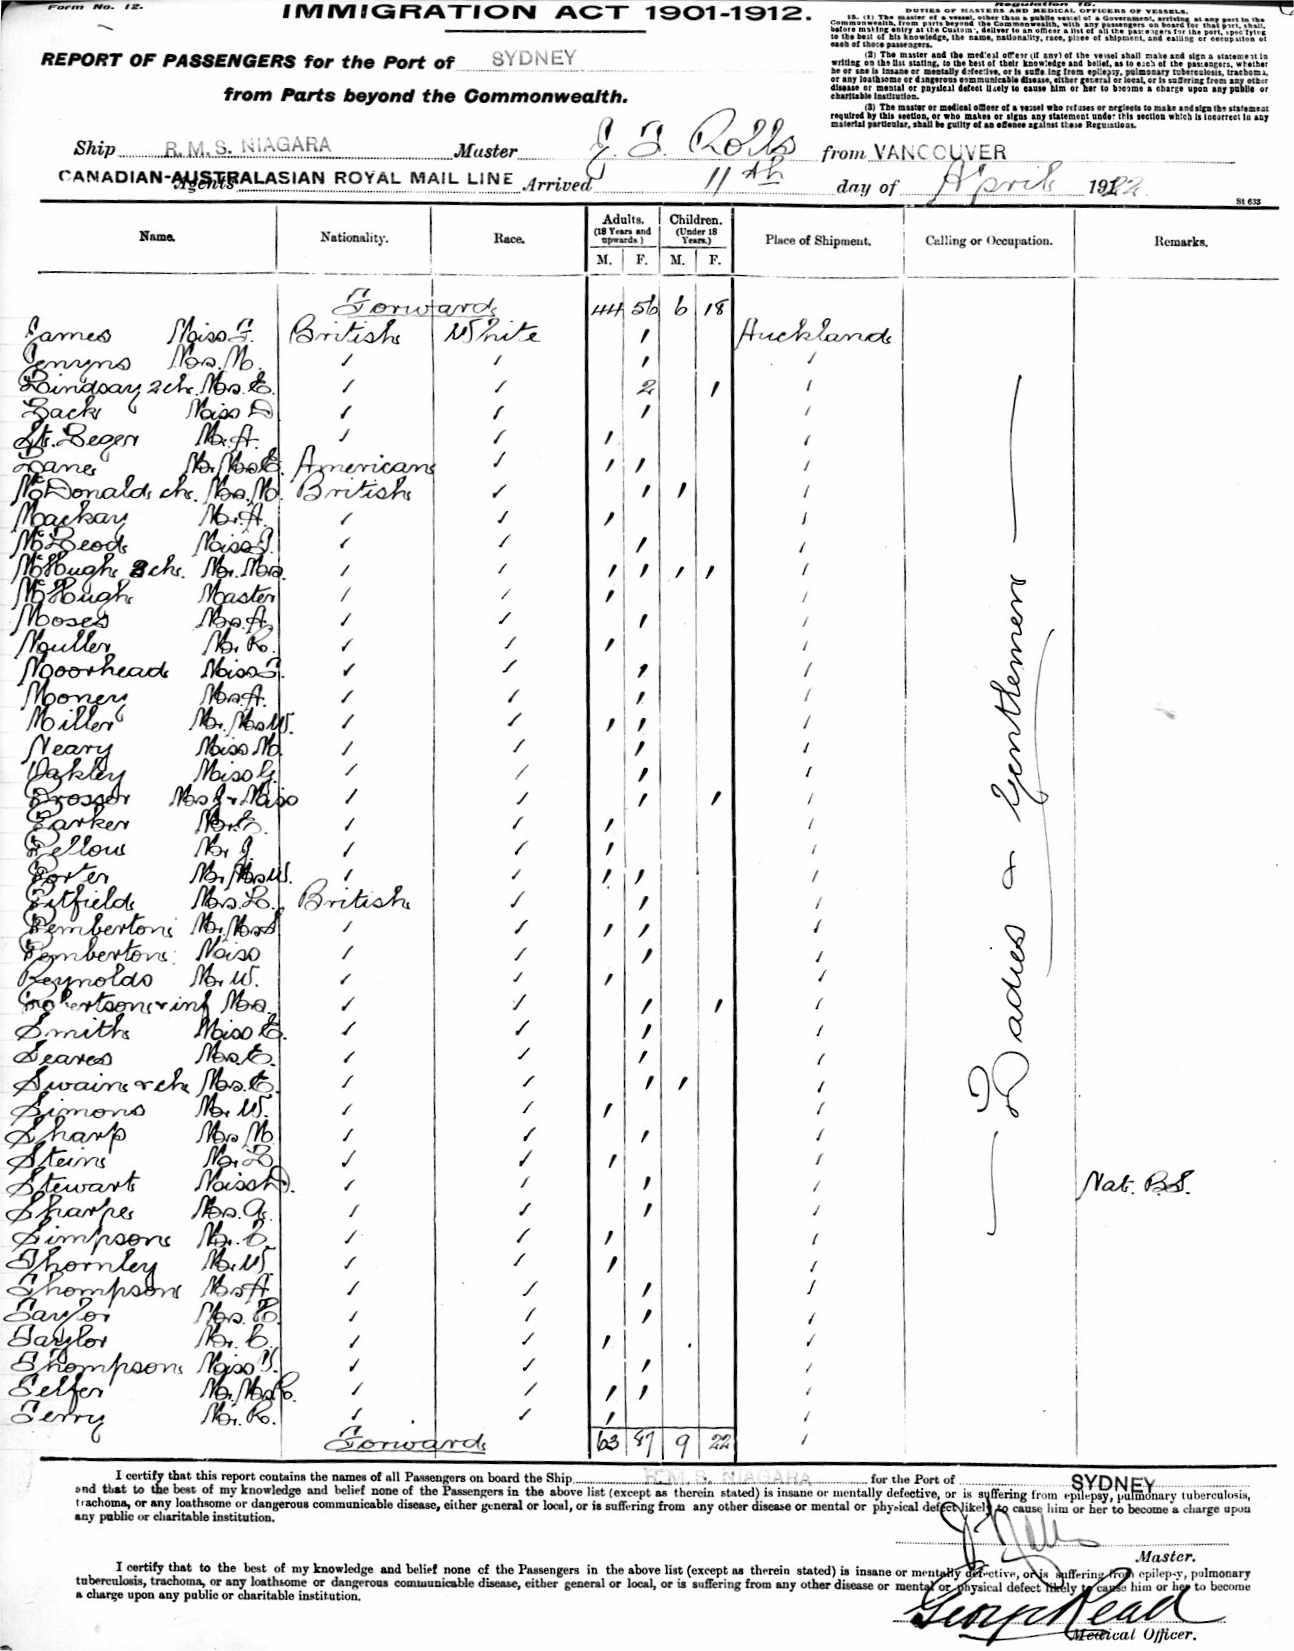 Form No. 12.
IMMIGRATION ACT 1901-1912.
REPORT OF PASSENGERS for the Port of SYDNEY
from Parts beyond the Commonwealth.
Regulation 15.
DUTIES OF MASTERS AND MEDICAL OFFICERS OF VESSELS.
15. (1) The master of a vessel, other than a public vessel of a Government, arriving at any port in the
Commonwealth, from parts beyond the Commonwealth, with any passengers on board for that port, shall,
before making entry at the Customs, deliver to an officer a list of all the passengers for the port, specifying
to the best of his knowledge, the name, nationality, race, place of shipment, and calling or occupation of
each of those passengers.
(2) The master and the medical officer (if any) of the vessel shall make and sign a statement in
writing on the list stating, to the best of their knowledge and belief, as to each of the passengers, whether
he or she is insane or mentally defective, or is suffering from epilepsy, pulmonary tuberculosis, trachoma,
or any loathsome or dangerous communicable disease, either general or local, or is suffering from any other
disease or mental or physical defect likely to cause him or her to become a charge upon any public or
charitable institution.
(3) The master or medical officer of a vessel who refuses or neglects to make and sign the statement
required by this section, or who makes or signs any statement under this section which is incorrect in any
material particular, shall be guilty of an offence against these Regulations.
Ship R.M.S. NIAGARA Master J. T. Rolls from VANCOUVER
CANADIAN-AUSTRALASIAN ROYAL MAIL LINE Agents Arrived 11th day of April 1922
St 633
Name. Nationality. Race. Adults. (18 Years and upwards.) M. F. Children. (Under 18 Years.) M. F. Place of Shipment. Calling or Occupation. Remarks.
Forward 44 56 6 18
James Miss F. British White 1 Auckland
Jenyns Mrs. M. 1
Lindsay 2 ch. Mrs. E. 2 1
Lack Miss D 1
St. Leger Mr. A. 1
Lane Mr. Mrs E. American 1 1
McDonald ch. Mrs. M. British 1 1
Mackay Mr. A. 1
McLeod Miss J. 1
McHugh 2 ch. Mr. Mrs. 1 1 1 1
McHugh Master 1
Moses Mrs. A. 1
Muller Mr. R. 1
Moorhead Miss J. 1
Mooney Mrs. A. 1
Miller Mr. Mrs W. 1 1
Neary Miss M. 1
Oakley Miss G. 1
Prosser Mrs J. + Miss 1 1
Parker Mr. E. 1
Pellow Mr. J 1
Porter Mr. Mrs W. 1 1
Pitfield Mrs. L. British 1
Pemberton Mr. Mrs S 1 1
Pemberton Miss 1
Reynolds Mr. W. 1
Robertson & inf Mrs. 1 1
Smith Miss E. 1
Seares Mrs E. 1
Swain & ch Mrs. E. 1 1
Simons Mr. W. 1
Sharp Mrs M 1
Stein Mr. L 1
Stewart Miss D. 1 Nat. B.S.
Sharpe Mrs. A. 1
Simpson Mr. C. 1
Thornley Mr. W. 1
Thompson Mrs A 1
Taylor Mrs. E. 1
Taylor Mr. C. 1
Thompson Miss V. 1
Telfer Mr. Mrs R. 1 1
Terry Mr. R. 1
Forward 63 87 9 22
Ladies & Gentlemen
I certify that this report contains the names of all Passengers on board the Ship R.M.S. NIAGARA for the Port of SYDNEY
and that to the best of my knowledge and belief none of the Passengers in the above list (except as therein stated) is insane or mentally defective, or is suffering from epilepsy, pulmonary tuberculosis,
trachoma, or any loathsome or dangerous communicable disease, either general or local, or is suffering from any other disease or mental or physical defect likely to cause him or her to become a charge upon
any public or charitable institution.
J. Rolls
Master.
I certify that to the best of my knowledge and belief none of the Passengers in the above list (except as therein stated) is insane or mentally defective, or is suffering from epilepsy, pulmonary
tuberculosis, trachoma, or any loathsome or dangerous communicable disease, either general or local, or is suffering from any other disease or mental or physical defect likely to cause him or her to become
a charge upon any public or charitable institution.
George Read
Medical Officer.